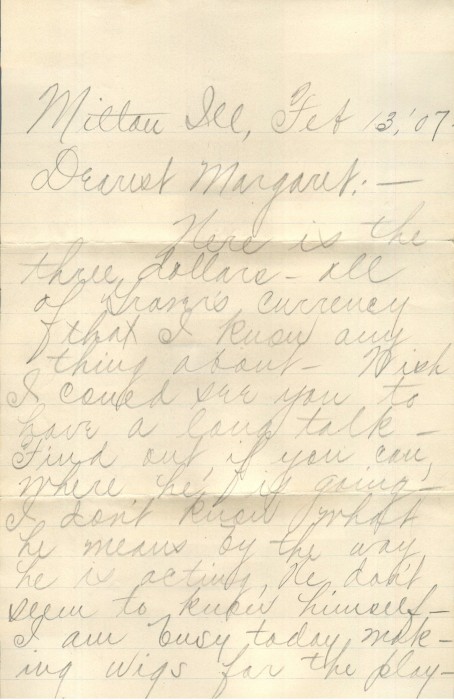 Milton Ill, Feb 13, '07.
Dearest Margaret: —
Here is the
three dollars — all
of currency
that I know any
thing about — Wish
I could see you to
have a long talk —
Find out, if you can,
where he is going —
I don't know what
he means by the way
he is acting, He don't
seem to know himself —
I am busy today mak-
ing wigs for the play —